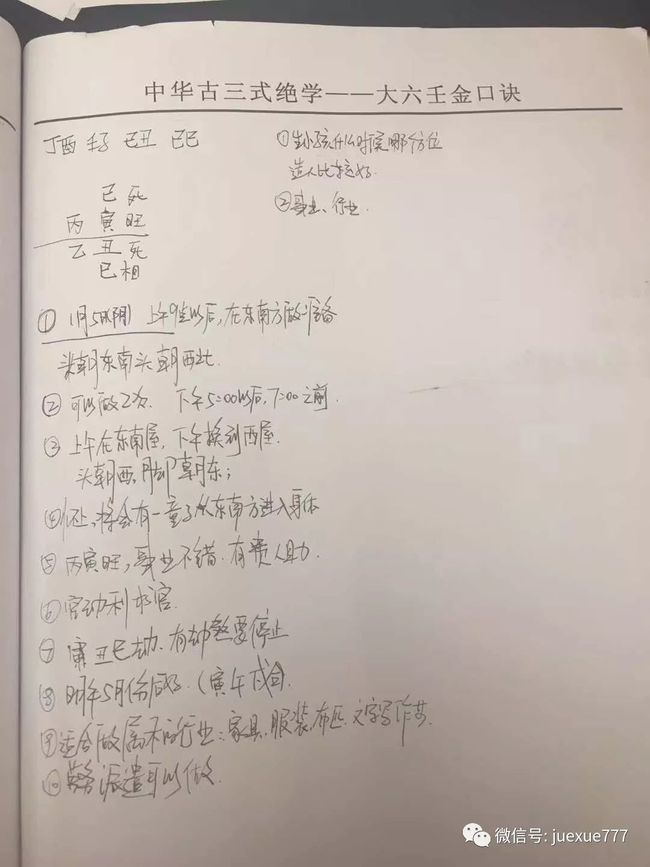 中华古三式绝学——大六壬金口诀
丁酉 壬子 己丑 己巳
①生小孩什么时候哪个方位
造人比较好.
②事业、行业.
己 死
丙 寅 旺
乙 丑 死
巳 相
① 1月5(阴) 上午9点以后,在东南方做准备
头朝西北.
② 可以做2次. 下午5:00以后,7:00之前.
③ 上午在东南屋,下午换到西屋.
头朝西,脚朝东;
④怀上,将会有一童子从东南方进入身体
⑤ 丙寅旺,事业不错.有贵人助.
⑥ 官动利求官.
⑦ 丑巳劫.有劫煞要停止
⑧ 明年5月份后好.(寅午戌合).
⑨适合做属木的行业:家具.服装.布匹.文字写作等.
⑩劳务派遣可以做.
微信号: juexue777